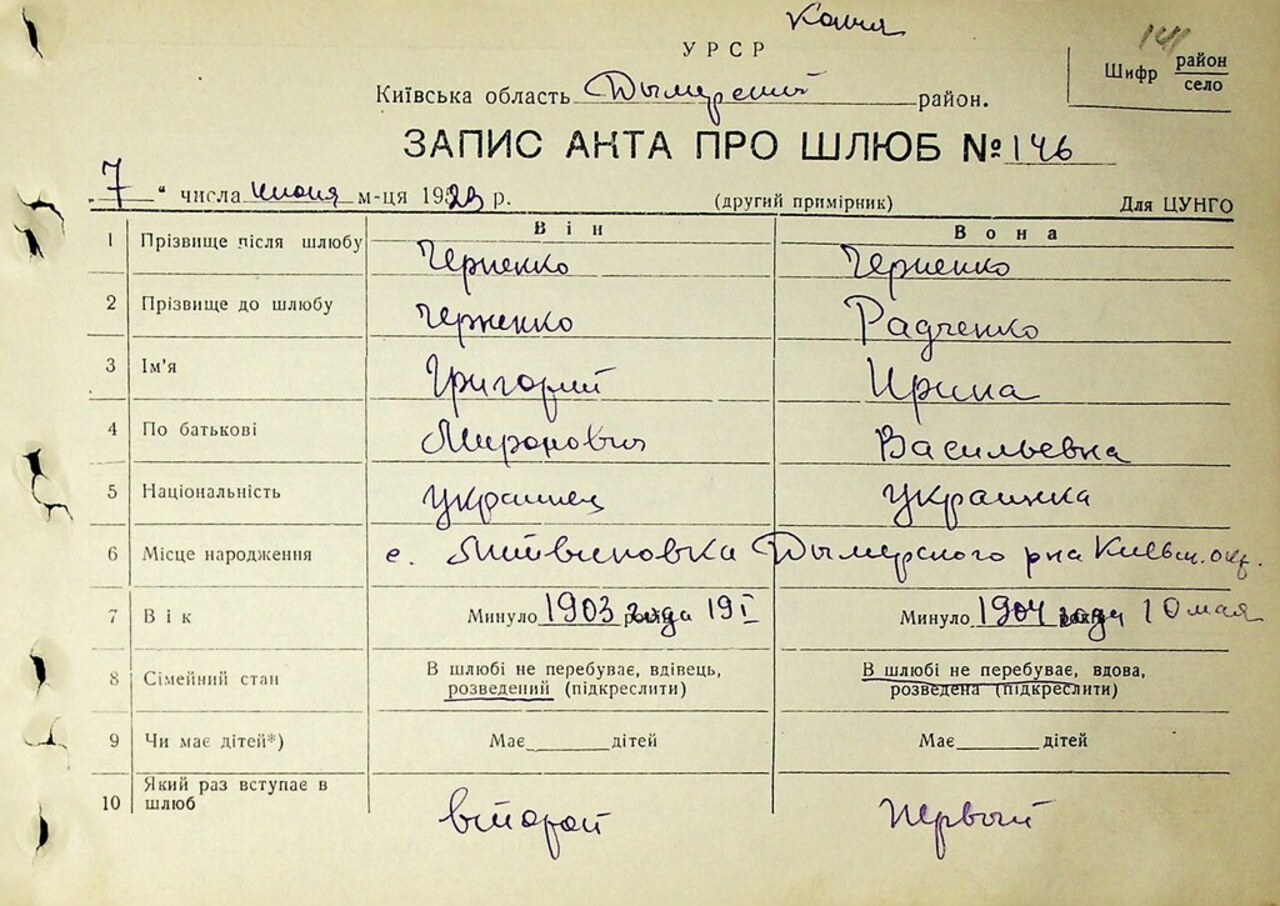 Копия
141
УРСР
Шифр район село
Київська область Дымерский район.
ЗАПИС АКТА ПРО ШЛЮБ № 146
„7“ числа июня м-ця 1929 р. (другий примірник) Для ЦУНГО
Він Вона
1 Прізвище після шлюбу Черненко Черненко
2 Прізвище до шлюбу Черненко Радченко
3 Ім'я Григорий Ирина
4 По батькові Миронович Васильевна
5 Національність украинец украинка
6 Місце народження с. Литвиновка Дымерского р-на Киевск. окр.
7 Вік Минуло 1903 года 19 I Минуло 1904 года 10 мая
8 Сімейний стан В шлюбі не перебуває, вдівець, розведений (підкреслити) В шлюбі не перебуває, вдова, розведена (підкреслити)
9 Чи має дітей*) Має______дітей Має______дітей
10 Який раз вступає в шлюб второй первый